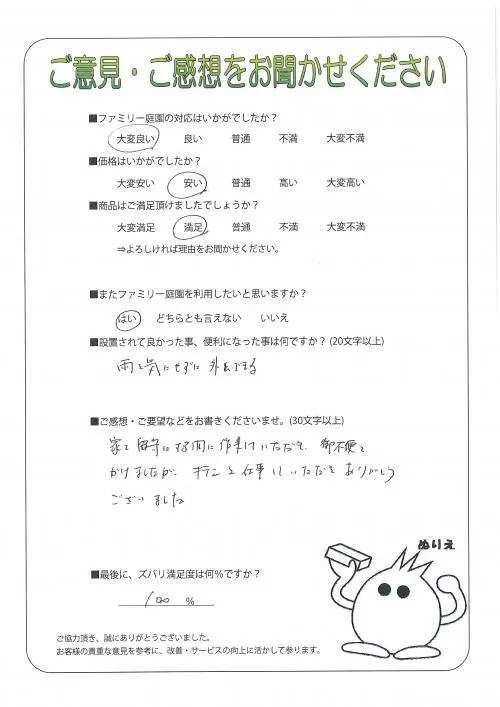 ご意見・ご感想をお聞かせください
■ファミリー庭園の対応はいかがでしたか？
大変良い 良い 普通 不満 大変不満
■価格はいかがでしたか？
大変安い 安い 普通 高い 大変高い
■商品はご満足頂けましたでしょうか？
大変満足 満足 普通 不満 大変不満
⇒よろしければ理由をお聞かせください。
■またファミリー庭園を利用したいと思いますか？
はい どちらとも言えない いいえ
■設置されて良かった事、便利になった事は何ですか？(20文字以上)
雨を気にせずに 外出できる
■ご感想・ご要望などをお書きくださいませ。(30文字以上)
家を留守にする間に作業していただき、御不便を
かけましたが、キチンと仕事していただきありがとう
ございました
ぬりえ
■最後に、ズバリ満足度は何％ですか？
100 %
ご協力頂き、誠にありがとうございました。
お客様の貴重な意見を参考に、改善・サービスの向上に活かして参ります。